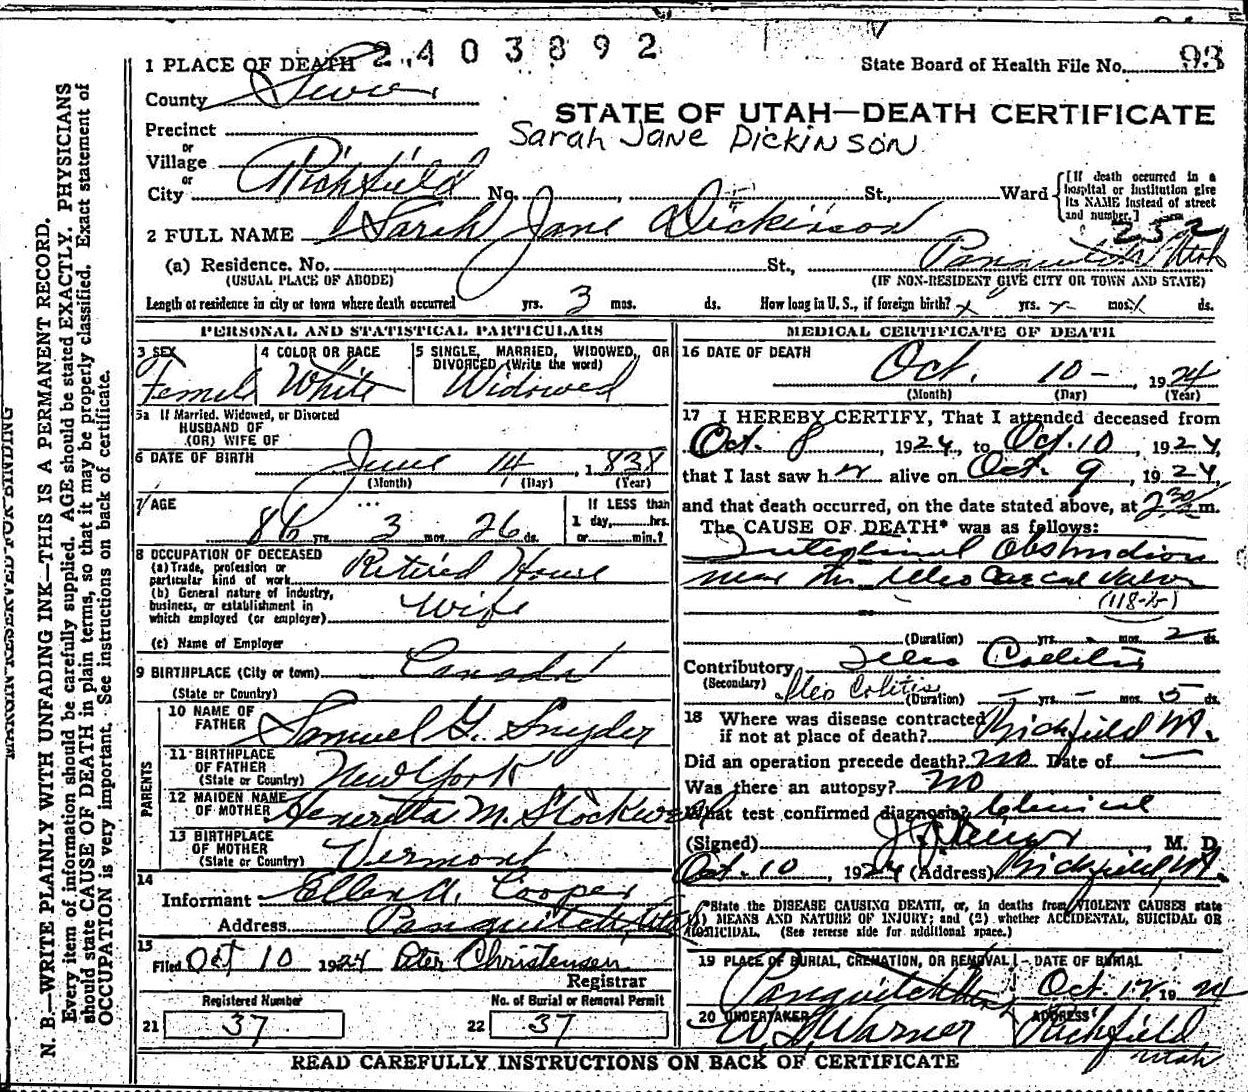 2403892
1 PLACE OF DEATH
State Board of Health File No. 93
County Sevier
STATE OF UTAH—DEATH CERTIFICATE
Precinct
Sarah Jane Dickinson
or
Village
or
City Richfield No. , St., Ward
[If death occurred in a hospital or institution give its NAME instead of street and number.]
252
2 FULL NAME Sarah Jane Dickinson
(a) Residence. No. St., Panguitch Utah
(USUAL PLACE OF ABODE) (IF NON-RESIDENT GIVE CITY OR TOWN AND STATE)
Length of residence in city or town where death occurred yrs. 3 mos. ds. How long in U. S., if foreign birth? x yrs. x mos. x ds.
PERSONAL AND STATISTICAL PARTICULARS
3 SEX 4 COLOR OR RACE 5 SINGLE, MARRIED, WIDOWED, OR
DIVORCED (Write the word)
Female White Widowed
5a If Married, Widowed, or Divorced
HUSBAND OF
(OR) WIFE OF
6 DATE OF BIRTH June 14, 1838
(Month) (Day) (Year)
7 AGE If LESS than
86 yrs. 3 mos. 26 ds. 1 day, hrs.
or min.?
8 OCCUPATION OF DECEASED
(a) Trade, profession or
particular kind of work Retired House
(b) General nature of industry,
business, or establishment in
which employed (or employer) Wife
(c) Name of Employer
9 BIRTHPLACE (City or town) Canada
(State or Country)
PARENTS
10 NAME OF
FATHER Samuel G. Snyder
11 BIRTHPLACE
OF FATHER
(State or Country) New York
12 MAIDEN NAME
OF MOTHER Heneretta M. Stockwell
13 BIRTHPLACE
OF MOTHER
(State or Country) Vermont
14
Informant Ellen A. Cooper
Address Panguitch, Utah
15
Filed Oct 10 1924 Peter Christensen
Registrar
Registered Number No. of Burial or Removal Permit
21 37 22 37
MEDICAL CERTIFICATE OF DEATH
16 DATE OF DEATH
Oct. 10 - , 1924
(Month) (Day) (Year)
17 I HEREBY CERTIFY, That I attended deceased from
Oct. 8, 1924, to Oct. 10, 1924,
that I last saw her alive on Oct. 9, 1924,
and that death occurred, on the date stated above, at 2 30 m.
The CAUSE OF DEATH* was as follows:
Intestinal Obstruction
near the Ileo Caecal Valve
(118-b)
(Duration) yrs. mos. 2 ds.
Contributory Ileo Colitis
(Secondary) Ileo Colitis
(Duration) — yrs. — mos. 5 ds.
18 Where was disease contracted
if not at place of death? Richfield Ut.
Did an operation precede death? No Date of —
Was there an autopsy? No
What test confirmed diagnosis? Clinical
(Signed) , M. D.
Oct. 10, 1924 (Address) Richfield, Ut.
*State the DISEASE CAUSING DEATH, or, in deaths from VIOLENT CAUSES state
(1) MEANS AND NATURE OF INJURY; and (2) whether ACCIDENTAL, SUICIDAL OR
HOMICIDAL. (See reverse side for additional space.)
19 PLACE OF BURIAL, CREMATION, OR REMOVAL - DATE OF BURIAL
Panguitch Utah Oct. 12, 1924
20 UNDERTAKER ADDRESS
W. L. Warner Richfield
Utah
READ CAREFULLY INSTRUCTIONS ON BACK OF CERTIFICATE
MARGIN RESERVED FOR BINDING
N. B.—WRITE PLAINLY WITH UNFADING INK—THIS IS A PERMANENT RECORD.
Every item of information should be carefully supplied. AGE should be stated EXACTLY. PHYSICIANS
should state CAUSE OF DEATH in plain terms, so that it may be properly classified. Exact statement of
OCCUPATION is very important. See instructions on back of certificate.